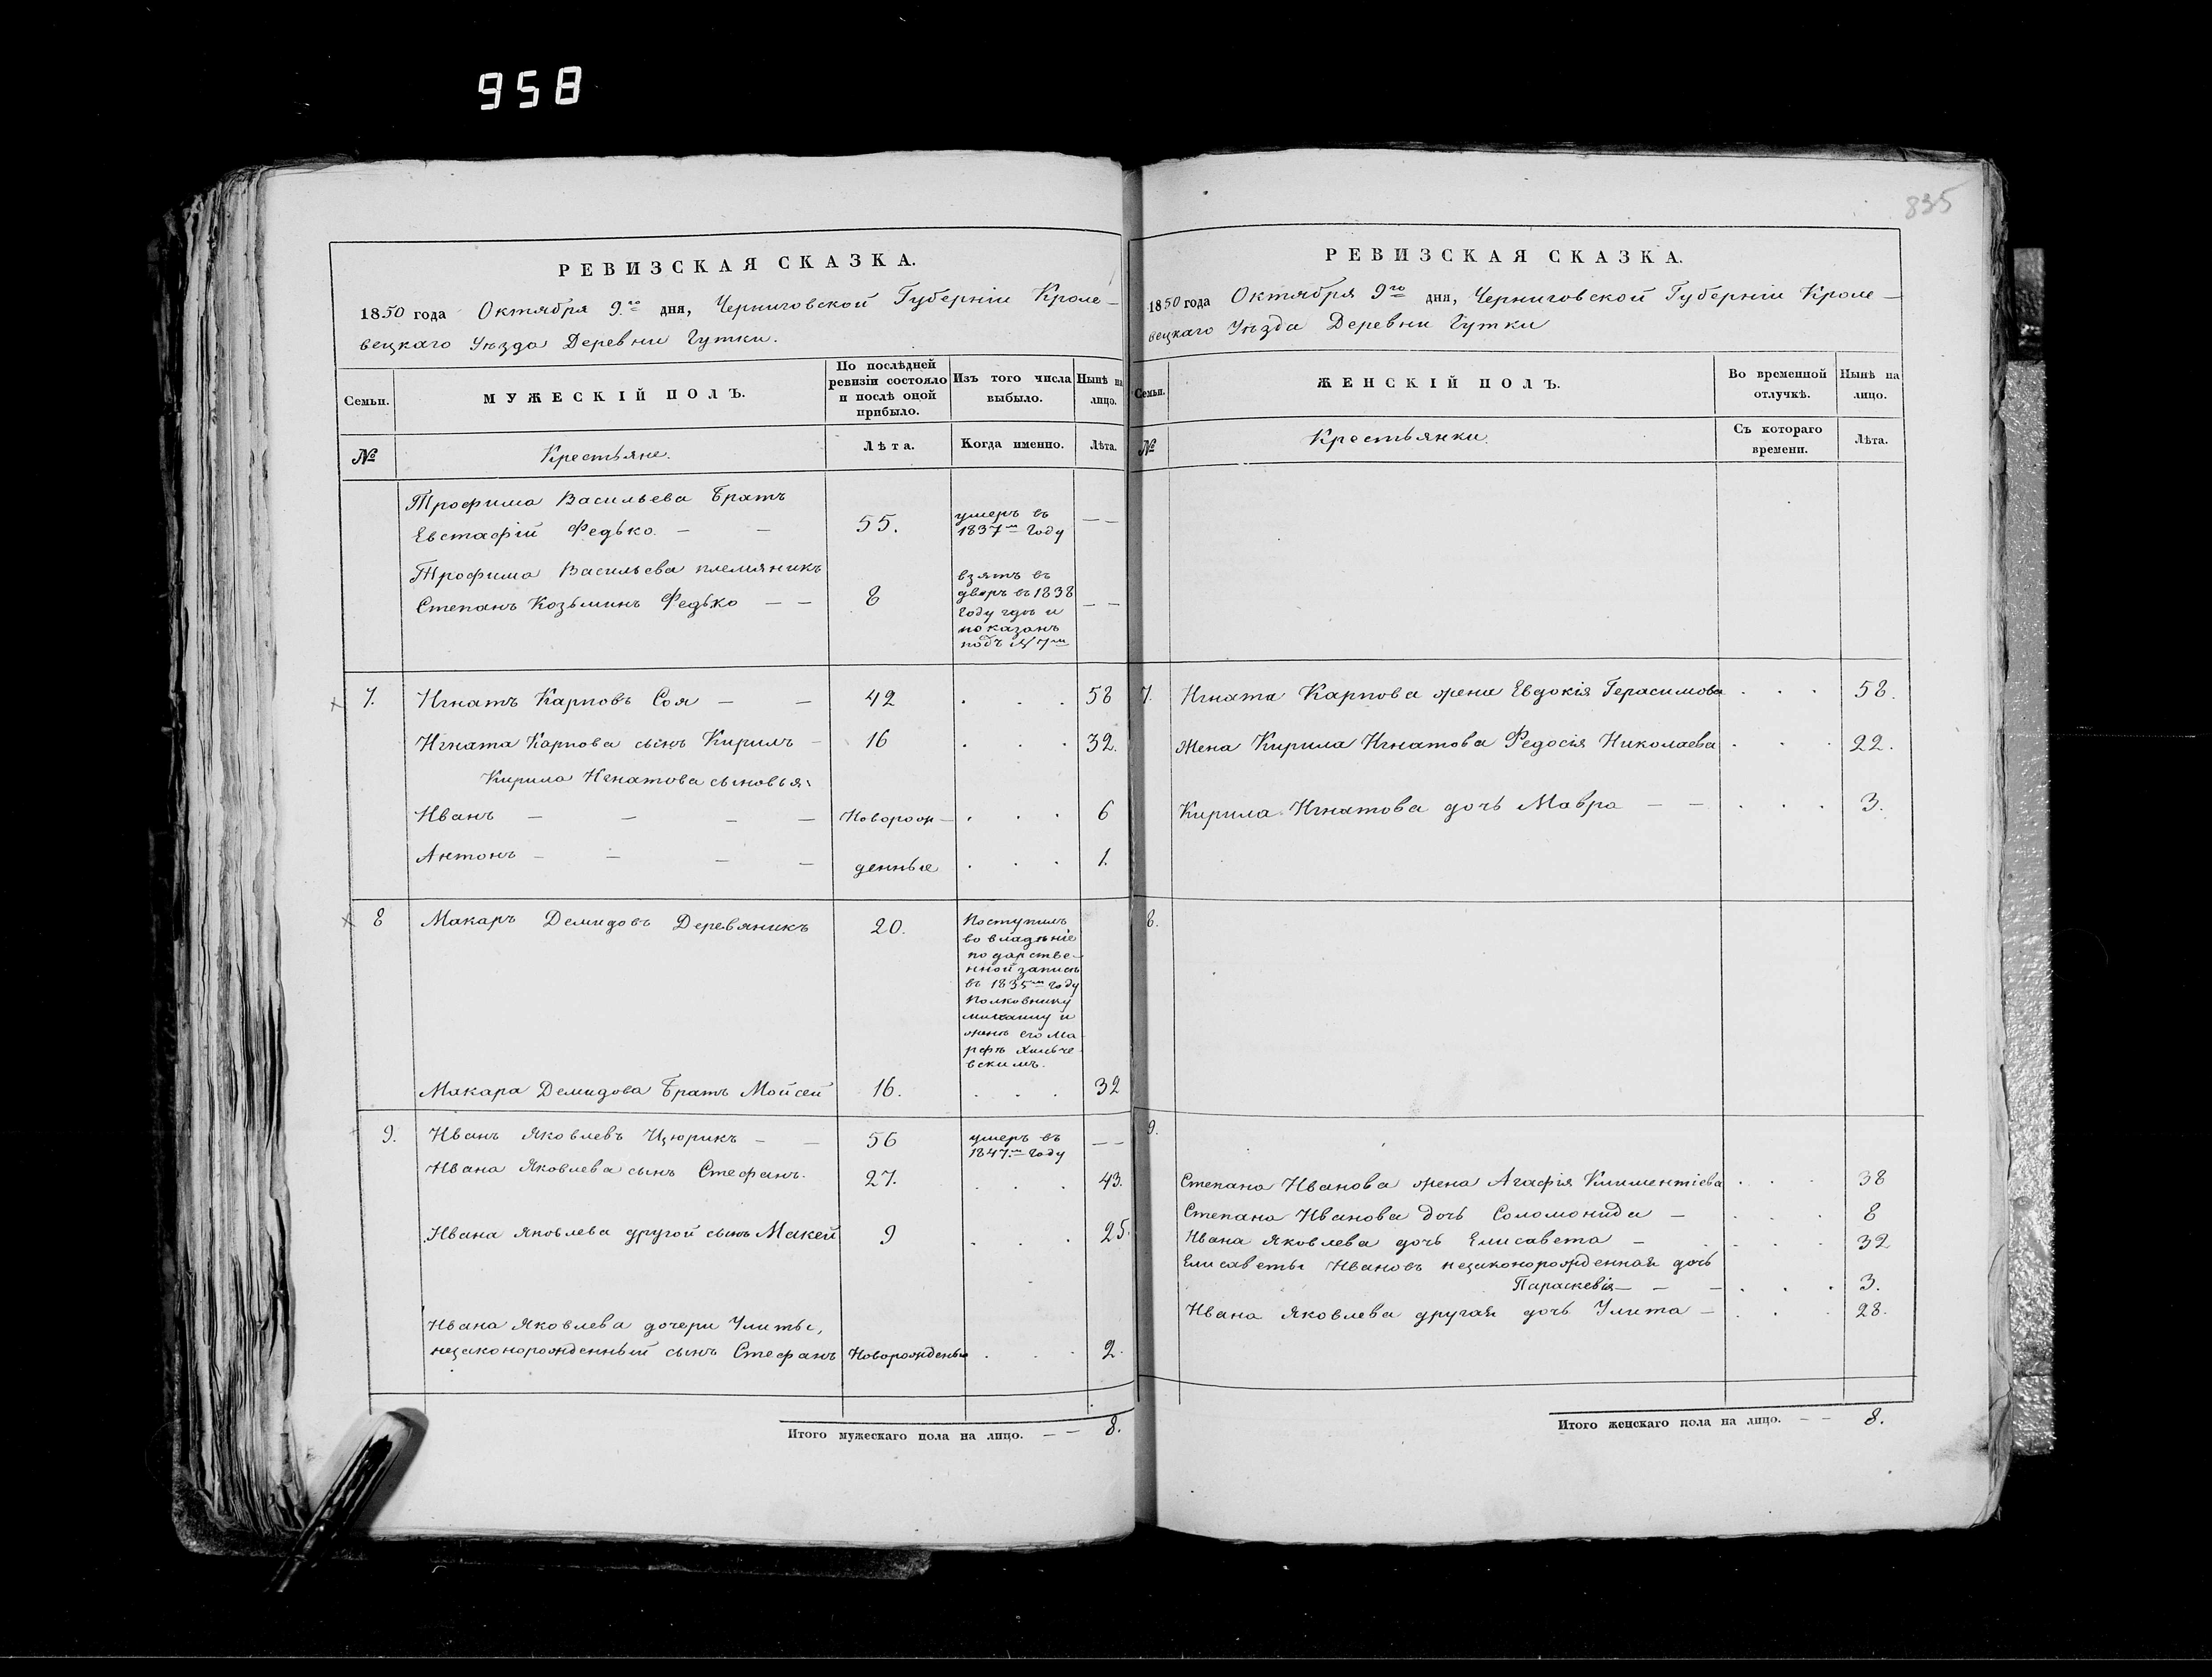 958
835
РЕВИЗСКАЯ СКАЗКА.
1850 года Октября 9го дня, Черниговской Губерніи Кроле-
вецкаго Уѣзда Деревни Гутки.
Семьи.
МУЖЕСКІЙ ПОЛЪ.
По послѣдней
ревизіи состояло
и послѣ оной
прибыло.
Изъ того числа
выбыло.
Нынѣ на
лицо.
№
Крестьяне.
Лѣта.
Когда именно.
Лѣта.
Трофима Васильева Братъ
Евстафій Федько. — — 55. умеръ въ — —
1837м Году
Трофима Васильева племяникъ
Степанъ Козьминъ Федько — — 8 взятъ въ — —
дворъ въ 1838
Году гдѣ и
показанъ
подъ № 7м
7. Игнатъ Карповъ Соя — — 42 . . . 58
Игната Карпова сынъ Кирилъ — 16 . . . 32.
Кирила Игнатова сыновья:
Иванъ — — — — Новорож- . . . 6
Антонъ — — — — денные . . . 1.
8 Макаръ Демидовъ Деревяникъ 20. Поступилъ
во владѣніе
по дарстве-
нной записѣ
въ 1835м году
Полковнику
Михаилу и
женѣ его Ма
рфѣ Хильче
вскимъ.
Макара Демидова Братъ Мойсей 16. . . . 32
9. Иванъ Яковлевъ Цюрикъ — — 56 умеръ въ — —
1847.м Году
Ивана Яковлева сынъ Стефанъ. 27. . . . 43.
Ивана Яковлева другой сынъ Макей 9 . . . 25.
Ивана Яковлева дочери Улиты,
незаконорожденный сынъ Стефанъ Новорожденый . . . 2.
Итого мужескаго пола на лицо. — — 8.
РЕВИЗСКАЯ СКАЗКА.
1850 года Октября 9го дня, Черниговской Губерніи Кроле—
вецкаго Уѣзда Деревни Гутки
Семьи.
ЖЕНСКІЙ ПОЛЪ.
Во временной
отлучкѣ.
Нынѣ на
лицо.
№
Крестьянки.
Съ котораго
времени.
Лѣта.
7. Игната Карпова жена Евдокія Герасимова . . . 58.
Жена Кирила Игнатова Федосія Николаева . . . 22.
Кирила Игнатова дочь Мавра — — . . . 3.
8.
9.
Степана Иванова жена Агафія Климентіева . . . 38
Степана Иванова дочь Соломонида — . . . 8
Ивана Яковлева дочь Елисавета — . . . 32
Елисаветы Ивановъ незаконорожденная дочь
Параскевія — — — . . . 3.
Ивана Яковлева другая дочь Улита — . . . 28.
Итого женскаго пола на лицо. — — 8.